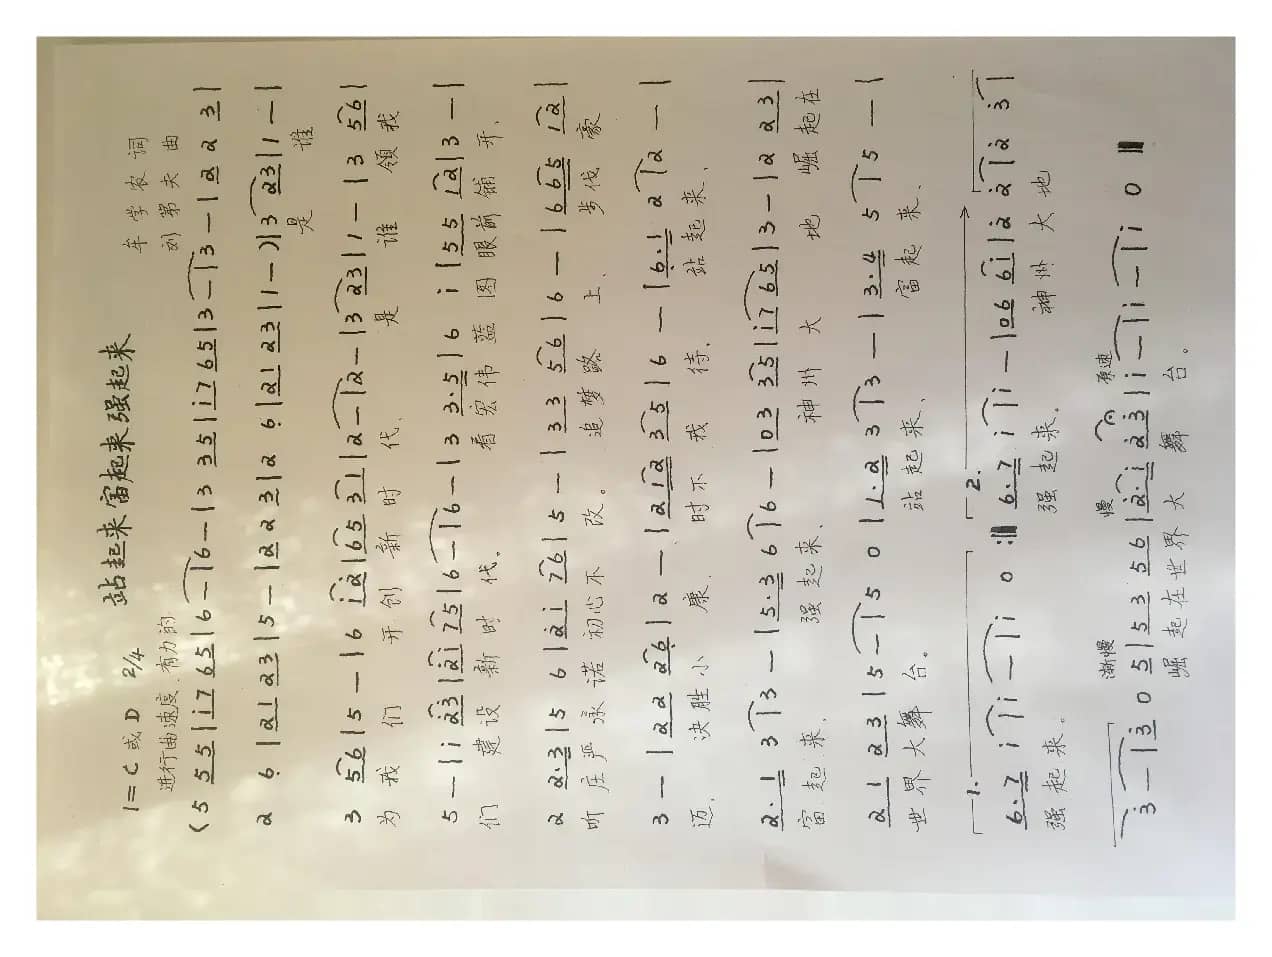 站起来富起来强起来
1=C 或 D 2/4 牟学农 词
进行曲速度 有力的 刘第夫 曲
(5 5 5 5 | i 7 6 5 | 6 — | 6 — | 3 3 5 | i 7 6 5 | 3 — | 3 — | 1 2 2 3 |
2 6 | 2 1 2 3 | 5 — | 2 2 3 | 2 6 | 2 1 2 3 | 1 — ) | 3 2 3 | 1 — |
是 谁
3 5 6 | 5 — | 6 i 2 | 6 5 3 1 | 2 — | 2 — | 3 2 3 | 1 — | 3 5 6 |
为 我 们 开 创 新 时 代, 是 谁 领 我
5 — | i 2 3 | 2 i 7 5 | 6 — | 6 — | 3 3·5 | 6 i | 5 5 1 2 | 3 — |
们 建 设 新 时 代。 看 宏 伟 蓝 图 眼 前 铺 开,
2 2·3 | 5 6 | 2 i 7 6 | 5 — | 3 3 5 6 | 6 — | 6 6 5 1 2 |
听 庄 严 承 诺 初 心 不 改。 追 梦 路 上, 步 伐 豪
3 — | 2 2 2 6 | 2 — | 2 1 2 3 5 | 6 — | 6·1 2 | 2 — |
迈, 决 胜 小 康, 时 不 我 待, 站 起 来,
2·1 3 | 3 — | 5·3 6 | 6 — | 0 3 3 5 | i 7 6 5 | 3 — | 2 2 3 |
富 起 来, 强 起 来, 神 州 大 地 崛 起 在
2 1 2 3 | 5 — | 5 0 | 1·2 3 | 3 — | 3·4 5 | 5 — |
世 界 大 舞 台。 站 起 来, 富 起 来,
1. 2.
6·7 i | i — | i 0 :‖ 6·7 i | i — | 0 6 6 i | 2 2 | 2 3 |
强 起 来。 强 起 来。 神 州 大 地
渐慢 慢 原速
3 — | 3 0 5 | 5 3 5 6 | 2·i 2 3 | i — | i — | i 0 ‖
崛 起 在 世 界 大 舞 台。